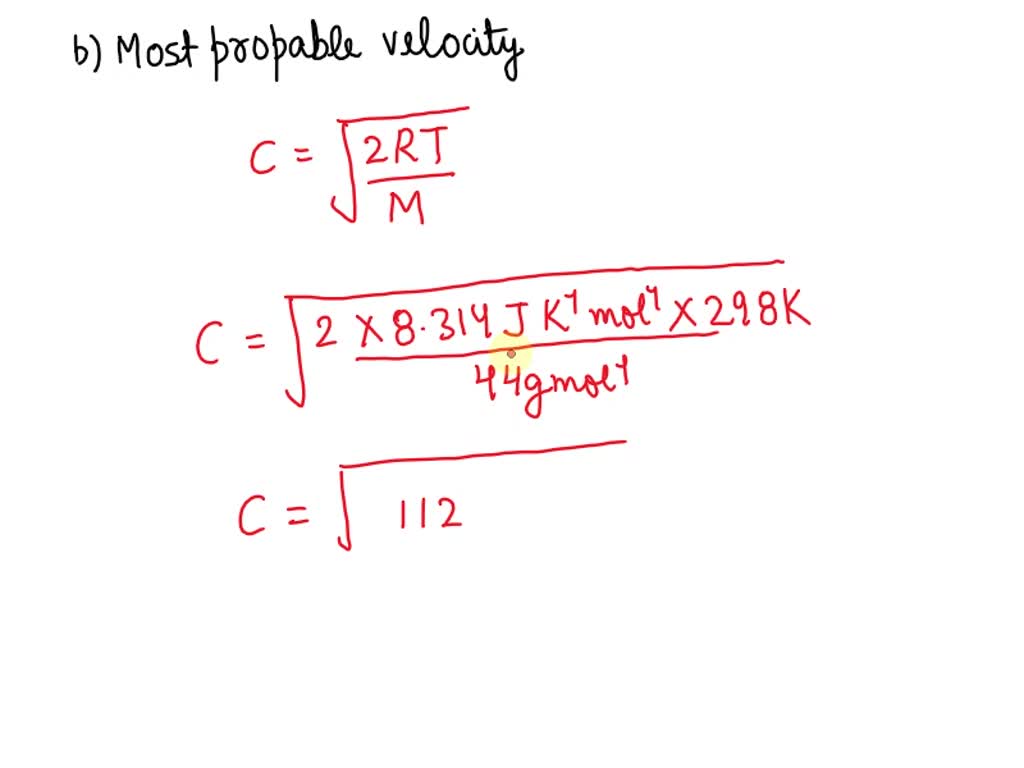 b) Most propable velocity
C = √2RT
M
C = √2 X 8.314 J K⁻¹ mol⁻¹ X 298K
44gmol⁻¹
C = √112